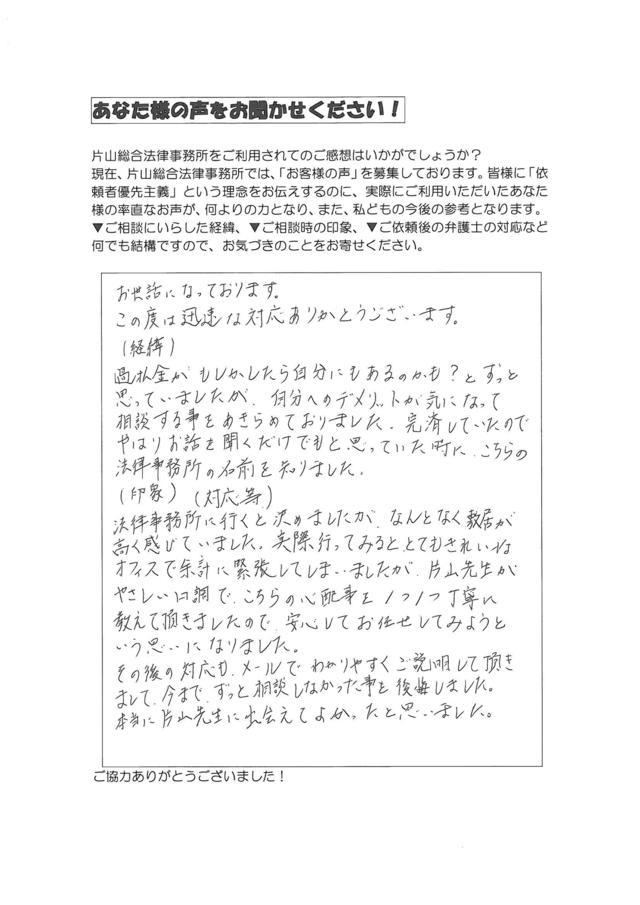 あなた様の声をお聞かせください！
片山総合法律事務所をご利用されてのご感想はいかがでしょうか？
現在、片山総合法律事務所では、「お客様の声」を募集しております。皆様に「依
頼者優先主義」という理念をお伝えするのに、実際にご利用いただいたあなた
様の率直なお声が、何よりの力となり、また、私どもの今後の参考となります。
▼ご相談にいらした経緯、▼ご相談時の印象、▼ご依頼後の弁護士の対応など
何でも結構ですので、お気づきのことをお寄せください。
お世話になっております。
この度は迅速な対応ありがとうございます。
(経緯)
過払金がもしかしたら自分にもあるのかも？とずっと
思っていましたが、自分へのデメリットが気になって
相談する事をあきらめておりました。完済していたので
やはりお話を聞くだけでもと思っていた時に、こちらの
法律事務所の名前を知りました。
(印象) (対応等)
法律事務所に行くと決めましたが、なんとなく敷居が
高く感じていました。実際行ってみるととてもきれいな
オフィスで余計に緊張してしまいましたが、片山先生が
やさしい口調で、こちらの心配事を1つ1つ丁寧に
教えて頂きましたので、安心してお任せしてみようと
いう思いになりました。
その後の対応も、メールでわかりやすくご説明して頂き
まして、今まで、ずっと相談しなかった事を後悔しました。
本当に片山先生に出会えてよかったと思いました。
ご協力ありがとうございました！